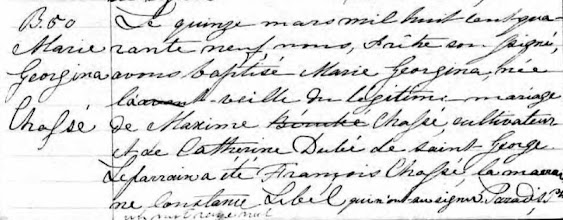 B.50
Marie
Georgina
Chassé
Le quinze mars mil huit cent qua
rante neuf nous, Prêtre soussigné,
avons baptisé Marie Georgina, née
l'avant veille du légitime mariage
de Maxime Chassé, cultivateur
et de Catherine Dubé de saint George
Le parrain a été François Chassé, la marrai
ne Constance Lebel qui n'ont su signer Paradis Ptr